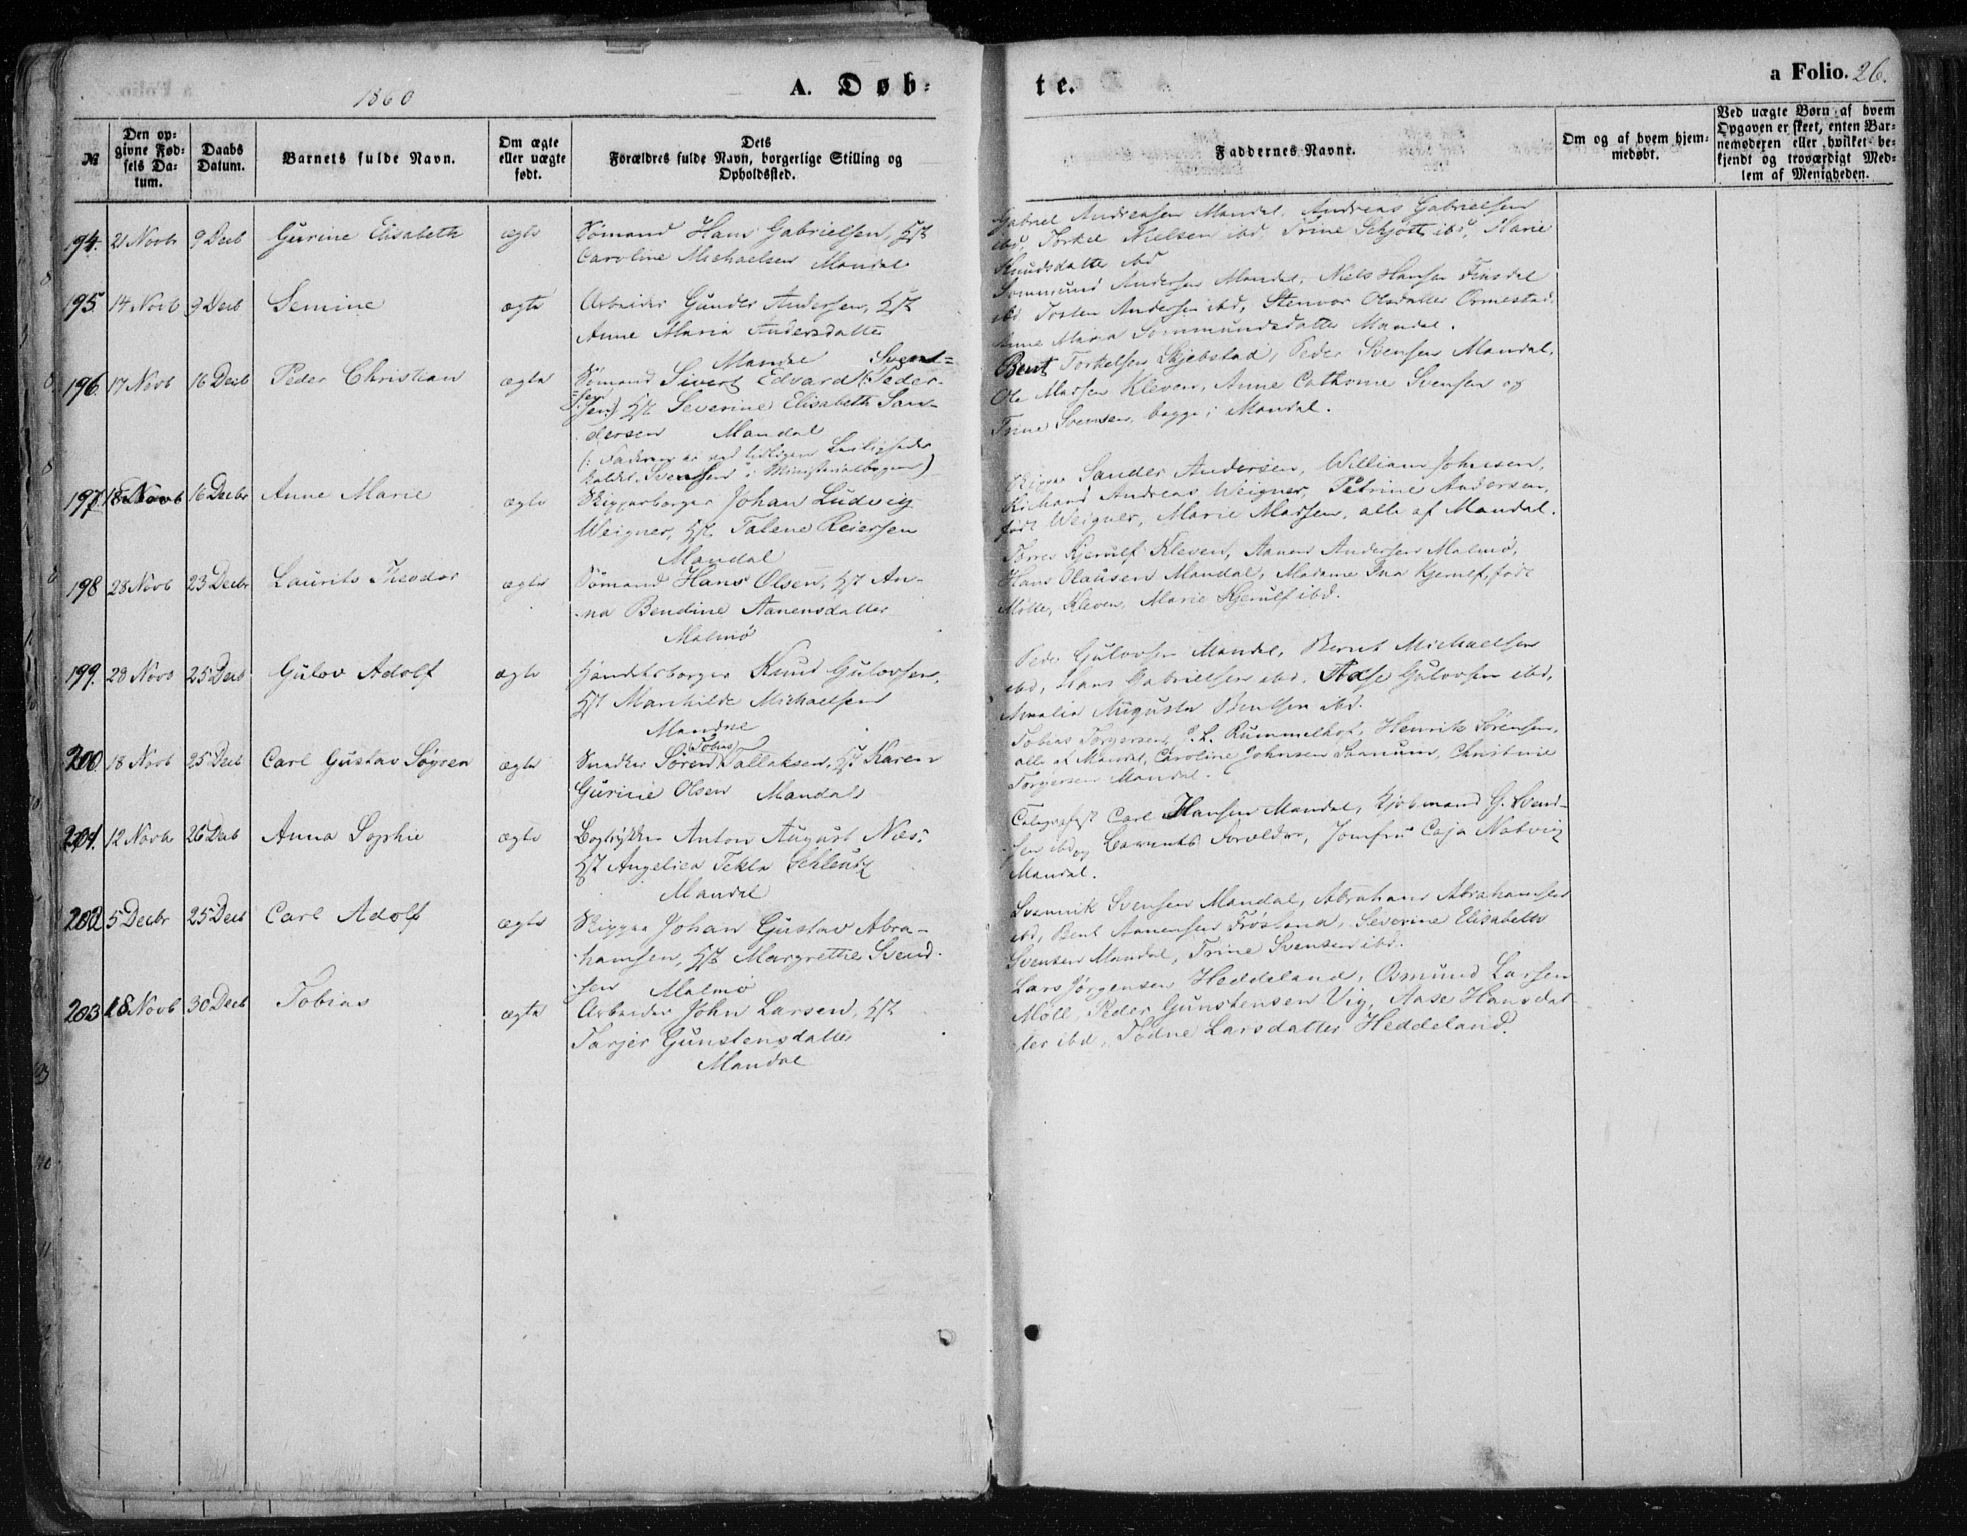 1860
A. Døb=
te.
a Folio. 26.
№
Den op=
givne Fød=
sels Da=
tum.
Daabs
Datum.
Barnets fulde Navn.
Om ægte
eller uægte
født.
Dets
Forældres fulde Navn, borgerlige Stilling og
Opholdssted.
Faddernes Navne.
Om og af hvem hjem=
medøbt.
Ved uægte Børn af hvem
Opgaven er skeet, enten Bar=
nemoderen eller hvilket be=
kjendt og troværdigt Med=
lem af Menigheden.
194. 21 Novb 9 Decb Gurine Elisabeth ægte Sømand Hans Gabrielsen, Hst
Caroline Michaelsen Mandal
Gabriel Andreasen Mandal, Andreas Gabrielsen
ibd, Torkel Nielsen ibd, Trine Schjøtt ibd, Marie
Knudsdatte ibd
195. 14 Novb 9 Decb Semine ægte Arbeider Gunder Andersen, Hst
Anne Maria Andersdatte
Mandal
Sommund Andersen Mandal, Niels Hansen
ibd Tosten Andersen ibd, Stenvor Olsdatter Ormestad,
Anne Maria Sommundsdatter Mandal.
196. 17 Novb 16 Decb Peder Christian ægte Sømand Sivert Edvard (: Peder-
sen) Hst Severine Elisabeth San-
dersen Mandal
Bent Torkelsen Skjebstad, Peder Svensen Mandal,
Ole Madsen Kleven, Anne Cathrine Svensen og
Trine Svensen, begge i Mandal.
(: Faderen er ved Leilighed
kaldet Svensen i Ministerialbogen)
197 18 Novb 16 Decbr Anne Marie ægte Skipperborger Johan Ludvig
Weigner, Hst Talene Reiersen
Mandal
Sander Andersen, William Johnsen,
Richard Andreas Weigner, Petrine Andersen,
født Weigner, Marie Madsen, alle af Mandal.
198 28 Novb 23 Decbr Laurits Theodor ægte Sømand Hans Olsen, Hst An-
na Bendine Aanensdatter
Malmø
Tørres Kjerulf Kleven, Aanen Andersen Malmø,
Hans Olausen Mandal, Madame Ina Kjerulf, født
Møller, Kleven, Marie Kjerulf ibd.
199. 28 Novb 25 Decb Gulov Adolf ægte Handelsborger Knud Gulovsen,
Hst Marthilde Michaelsen
Mandal
Peder Gulovsen Mandal, Bernt Michaelsen
ibd, Hans Gabrielsen ibd, Aase Gulovsen ibd,
Amalia Augusta Bentsen ibd.
200. 18 Novb 25 Decb Carl Gustav Søgren ægte Snedker Søren (Tobias) Tallaksen, Hst Karen
Gurine Olsen Mandal
Tobias Torgersen, P. L. Rummelhof, Henrik Sørensen,
alle af Mandal, Caroline Johnsen, Christine
Torgersen Mandal.
201. 12 Novb 26 Decb Anna Sophie ægte Bogtrykker Anton August Næs,
Hst Angelica Tekla Schlentz
Mandal
Telegrafist Carl Hansen Mandal, Kjøbmand G. Svend-
sen ibd og Barnets Forældre, Jomfru Caja Natvig
Mandal.
202 5 Decbr 25 Decb Carl Adolf ægte Skipper Johan Gustav Abra-
hamsen, Hst Margrethe Svend-
sen Malmø
Svensen Mandal, Abraham Abrahamsen
ibd, Bent Aanensen Frøsland, Severine Elisabeth
Svensen Mandal, Trine Svensen ibd.
203 18 Novb 30 Decb Tobias ægte Arbeider John Larsen, Hst
Tarjer Gunstensdatte
Mandal
Lars Jørgensen Heddeland, Osmund Larsen
Møll, Peder Gunstensen Vig, Aase Hansdat
ter ibd, Todne Larsdatter Heddeland.